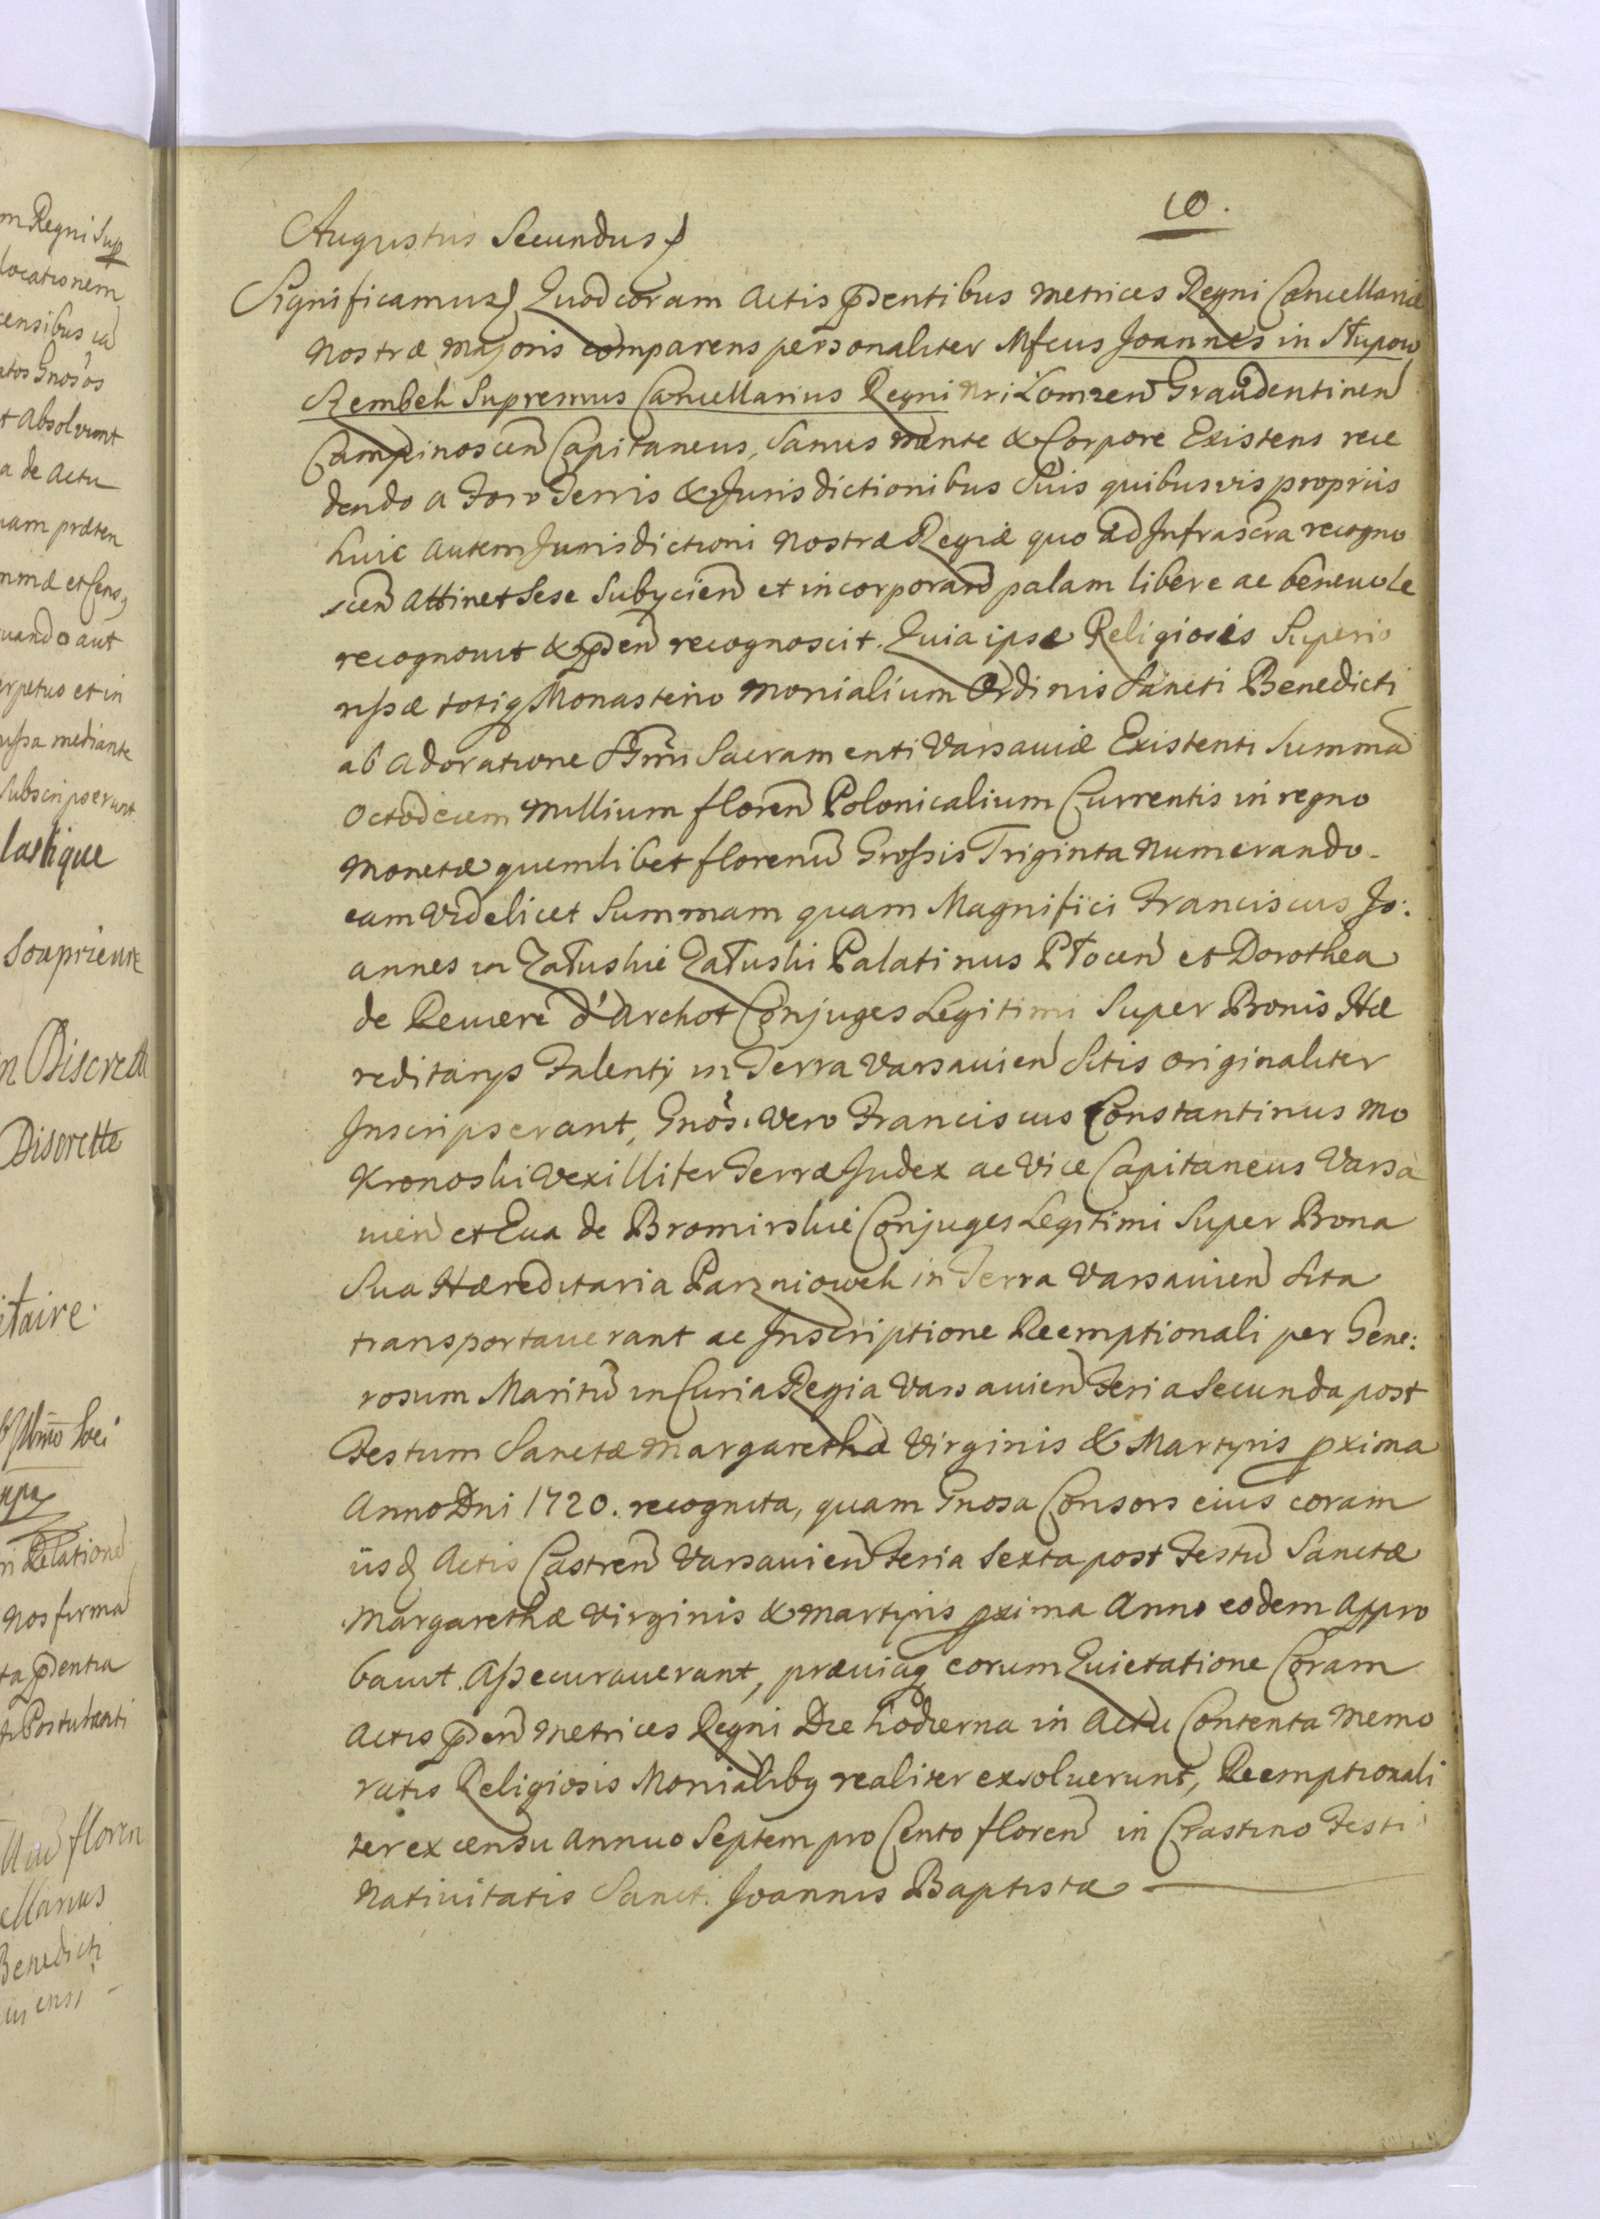 m Regni Sup
locationem
censibus ia
atos Gnosos
t Absolvunt
a de Actu
nam præten
mmæ et Cens
uando aut
erpetuo et in
ussa mediante
Subscripserunt
lastique
Souprieure
n Discrett
Discrette
itaire.
Relatione
Nos firma
Postulanti
floren
ellarius
Benedicti
uiensi
10.
Augustus Secundus
Significamus Quod coram Actis pdentibus Metrices Regni Cancellariæ
Nostræ Majoris comparens personaliter Mfcus Joannes in Słupow
Szembek Supremus Cancellarius Regni Nri Łomzen Graudentinen
Campinoscen Capitaneus, Sanus mente & Corpore Existens rece
dendo a Foro Terris & Jurisdictionibus Suis quibusvis proprijs
huic autem Jurisdictioni Nostræ Regiæ quo ad Infrascra recogno
scen attinet Sese Subycien et incorporand palam libere ac beneuole
recognouit & pden recognoscit. Quia ipse Religiosis Superio
rissæ totiq Monasterio Monialium Ordinis Sancti Benedicti
ab Adoratione SSmi Sacramenti Varsauiæ Existenti Summa
Octodecem Millium floren Polonicalium Currentis in regno
Monetæ quemlibet florenu Grossis Triginta Numerando.
eam Videlicet Summam quam Magnifici Franciscus Jo:
annes in Załuskie Załuski Palatinus Płocen et Dorothea
de Reuiere d'Archot Conjuges Legitimi Super Bonis Hæ
reditarys Falenty in Terra Varsauien Sitis originaliter
Inscripserant, Gnos. Vero Franciscus Constantinus Mo
Kronoski Vexillifer Terræ Judex ac Vice Capitaneus Varsa
uien et Eua de Bromirskie Conjuges Legitimi Super Bona
Sua Hæreditaria Parzniewek in Terra Varsauien Sita
transportauerant ac Inscriptione Reemptionali per Gene:
rosum Maritu in Curia Regia Varsauien Feria Secunda post
Festum Sanctæ Margarethæ Virginis & Martyris pxima
Anno Dni 1720. recognita, quam Gnosa Consors eius coram
iisq Actis Castren Varsauien Feria Sexta post Festu Sanctæ
Margarethæ Virginis & Martyris pxima Anno eodem Appro
bauit Assecurauerant, præuiaq eorum Quietatione Coram
Actis pden Metrices Regni Die hodierna in Actu Contenta Memo
ratis Religiosis Monialibq realiter exsoluerunt, Reemptionali
ter ex censu annuo Septem pro Cento floren in Crastino Festi
Nativitatis Sancti Joannis Baptistæ